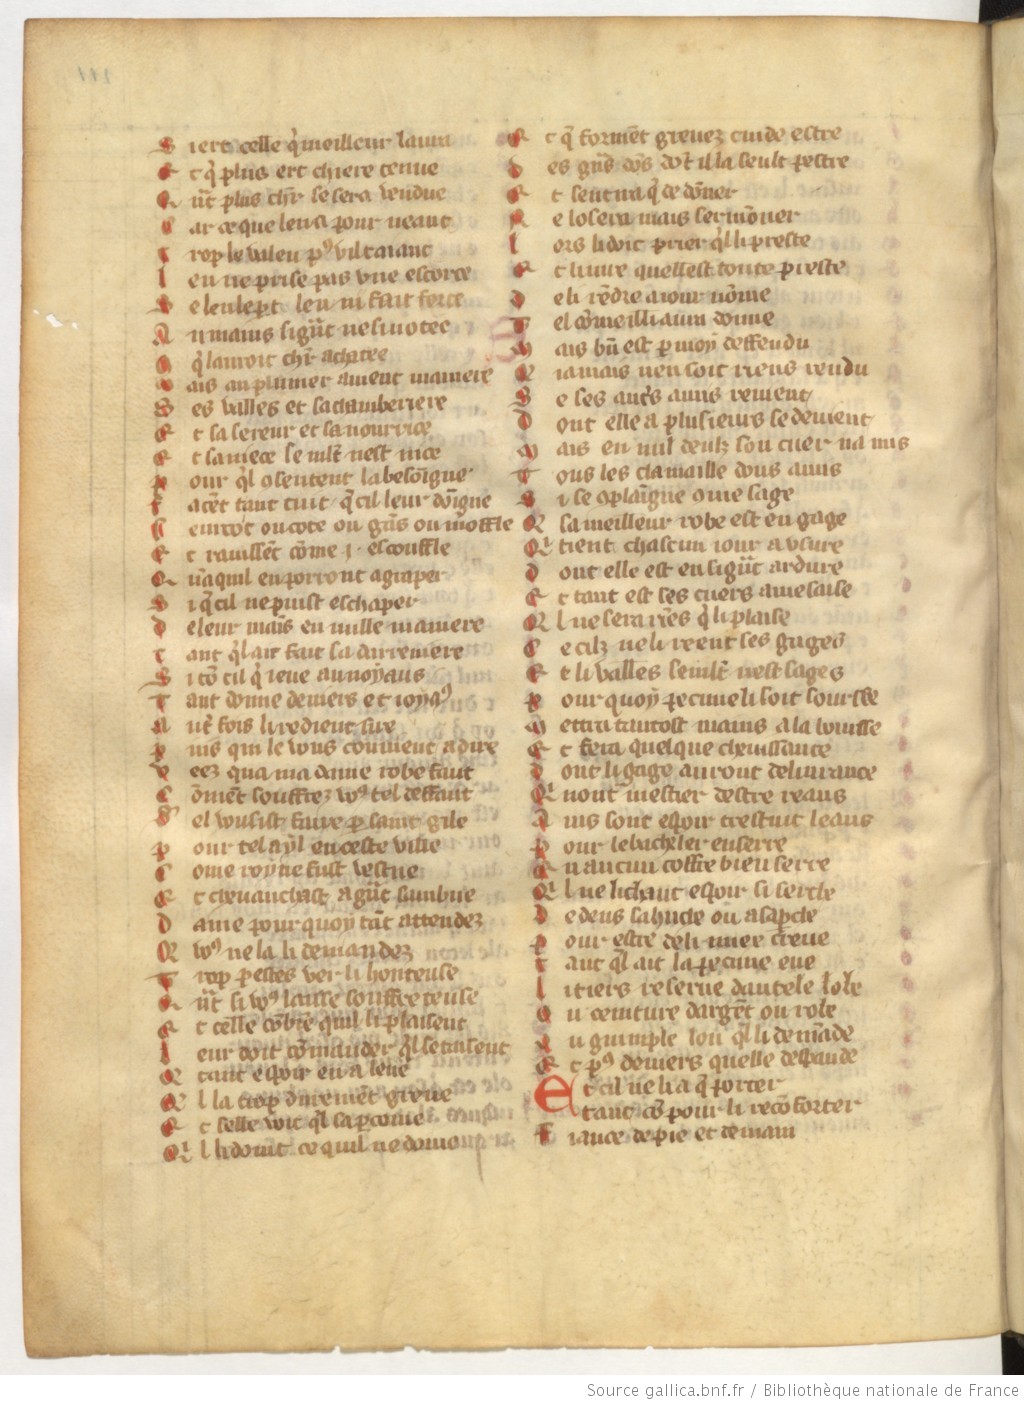 S iert celle q̄ meilleur laura
E t q̄ plus ert chiere tenue
Q ūt plus chr̄ se sera vendue
C ar ce que len a pour neant
T rop le va len pꝰ viltaiant
l en ne prise pas vne escorce
S e len le pert leu ni fait force
A u mains si gūt ne si notee
Q q̄l lauroit chr̄ achatee
M ais au plumer auient maniere
S es valles et sa chamberiere
E t sa sereur et sa nourrice
E t sa niece se ml̄t nest nice
P our q̄l osentent la besōigne
F acēt tant tuit q̄ cil leur dōigne
S eurcot ou cote ou gās ou moffle
E t rauissēt cōme .i. escouffle
Q uāquil en porront agraper
S i q̄ cil ne puist eschaper
D e leur mais en nulle maniere
T ant q̄l ait fait sa darreniere
S i cō cil q̄ ieue au noyaus
T ant donne deniers et ioyaꝰ
M lt̄ fois li redient sus
P uis qui le vous couuient a dire
V eez qua ma dame robe faut
C ōmēt souffrez vꝰ tel deffaut
S el vousist faire p saint gile
P our tel a yl en ceste ville
C ome royne fust vestue
E t cheuauchast a gūt sambue
D ame pour quoy tāt attendez
Q vꝰ ne la li demandez
T rop p estes vers li honteuse
Q ūt si vꝰ laisse souffreteuse
E t celle cōbiē quil li plaisent
l eur doit cōmander q̄l se taisent
Q tant espoir en a leue
Q l la trop duremēt greue
E t selle voit q̄l sapcoiue
Q l li donit ce quil ne doiue
E t q̄ formēt greuez cuide estre
D es grās dōs dōt il la seult pestre
E t sentira q̄ de dōner
N e losera mais sermōner
l ors li doit prier q̄l li preste
E t li iure quellest toute preste
D e li rēdre a iour nōme
T el cō meilli aura donne
M ais bn̄ est p moy deffendu
Q iamais nen soit riens rendu
S e ses autˢ amis reuient
D ont elle a plusieurs se deuient
M ais en nul deulz son cuer na mis
T ous les clamaille dous amis
S i se cplaīgne cōme sage
Q sa meilleur robe est en gage
Q tient chascun iour a vsure
D ont elle est en si gūt ardure
E t tant est ses cuers a mesaise
Q l ne fera riēs q̄ li plaise
S e cilz ne li reent ses gages
E t li valles se ml̄t nest sages
P our quoy pecune li soit sourse
M ettra tantost mains a la bourse
E t fera quelque cheuissance
D ont li gage auront deliurance
Q nont mestier destre reans
A ins sont espoir trestuit leans
P our le bacheler enserre
E n aucun coffre bien serre
Q l ne li chaut espoir si serche
D edens sa huche ou a sa pche
P our estre de li mier creue
T ant q̄l ait la pecune eue
l i tiers reserue dautele lole
O u ceinture dargēt ou role
O u guimple lou q̄l li demāde
E t pꝰ deniers quelle despande
E t cil ne li a q̄ porter
E tant cō pour li recōforter
F iance de pie et de main
Source gallica.bnf.fr / Bibliothèque nationale de France